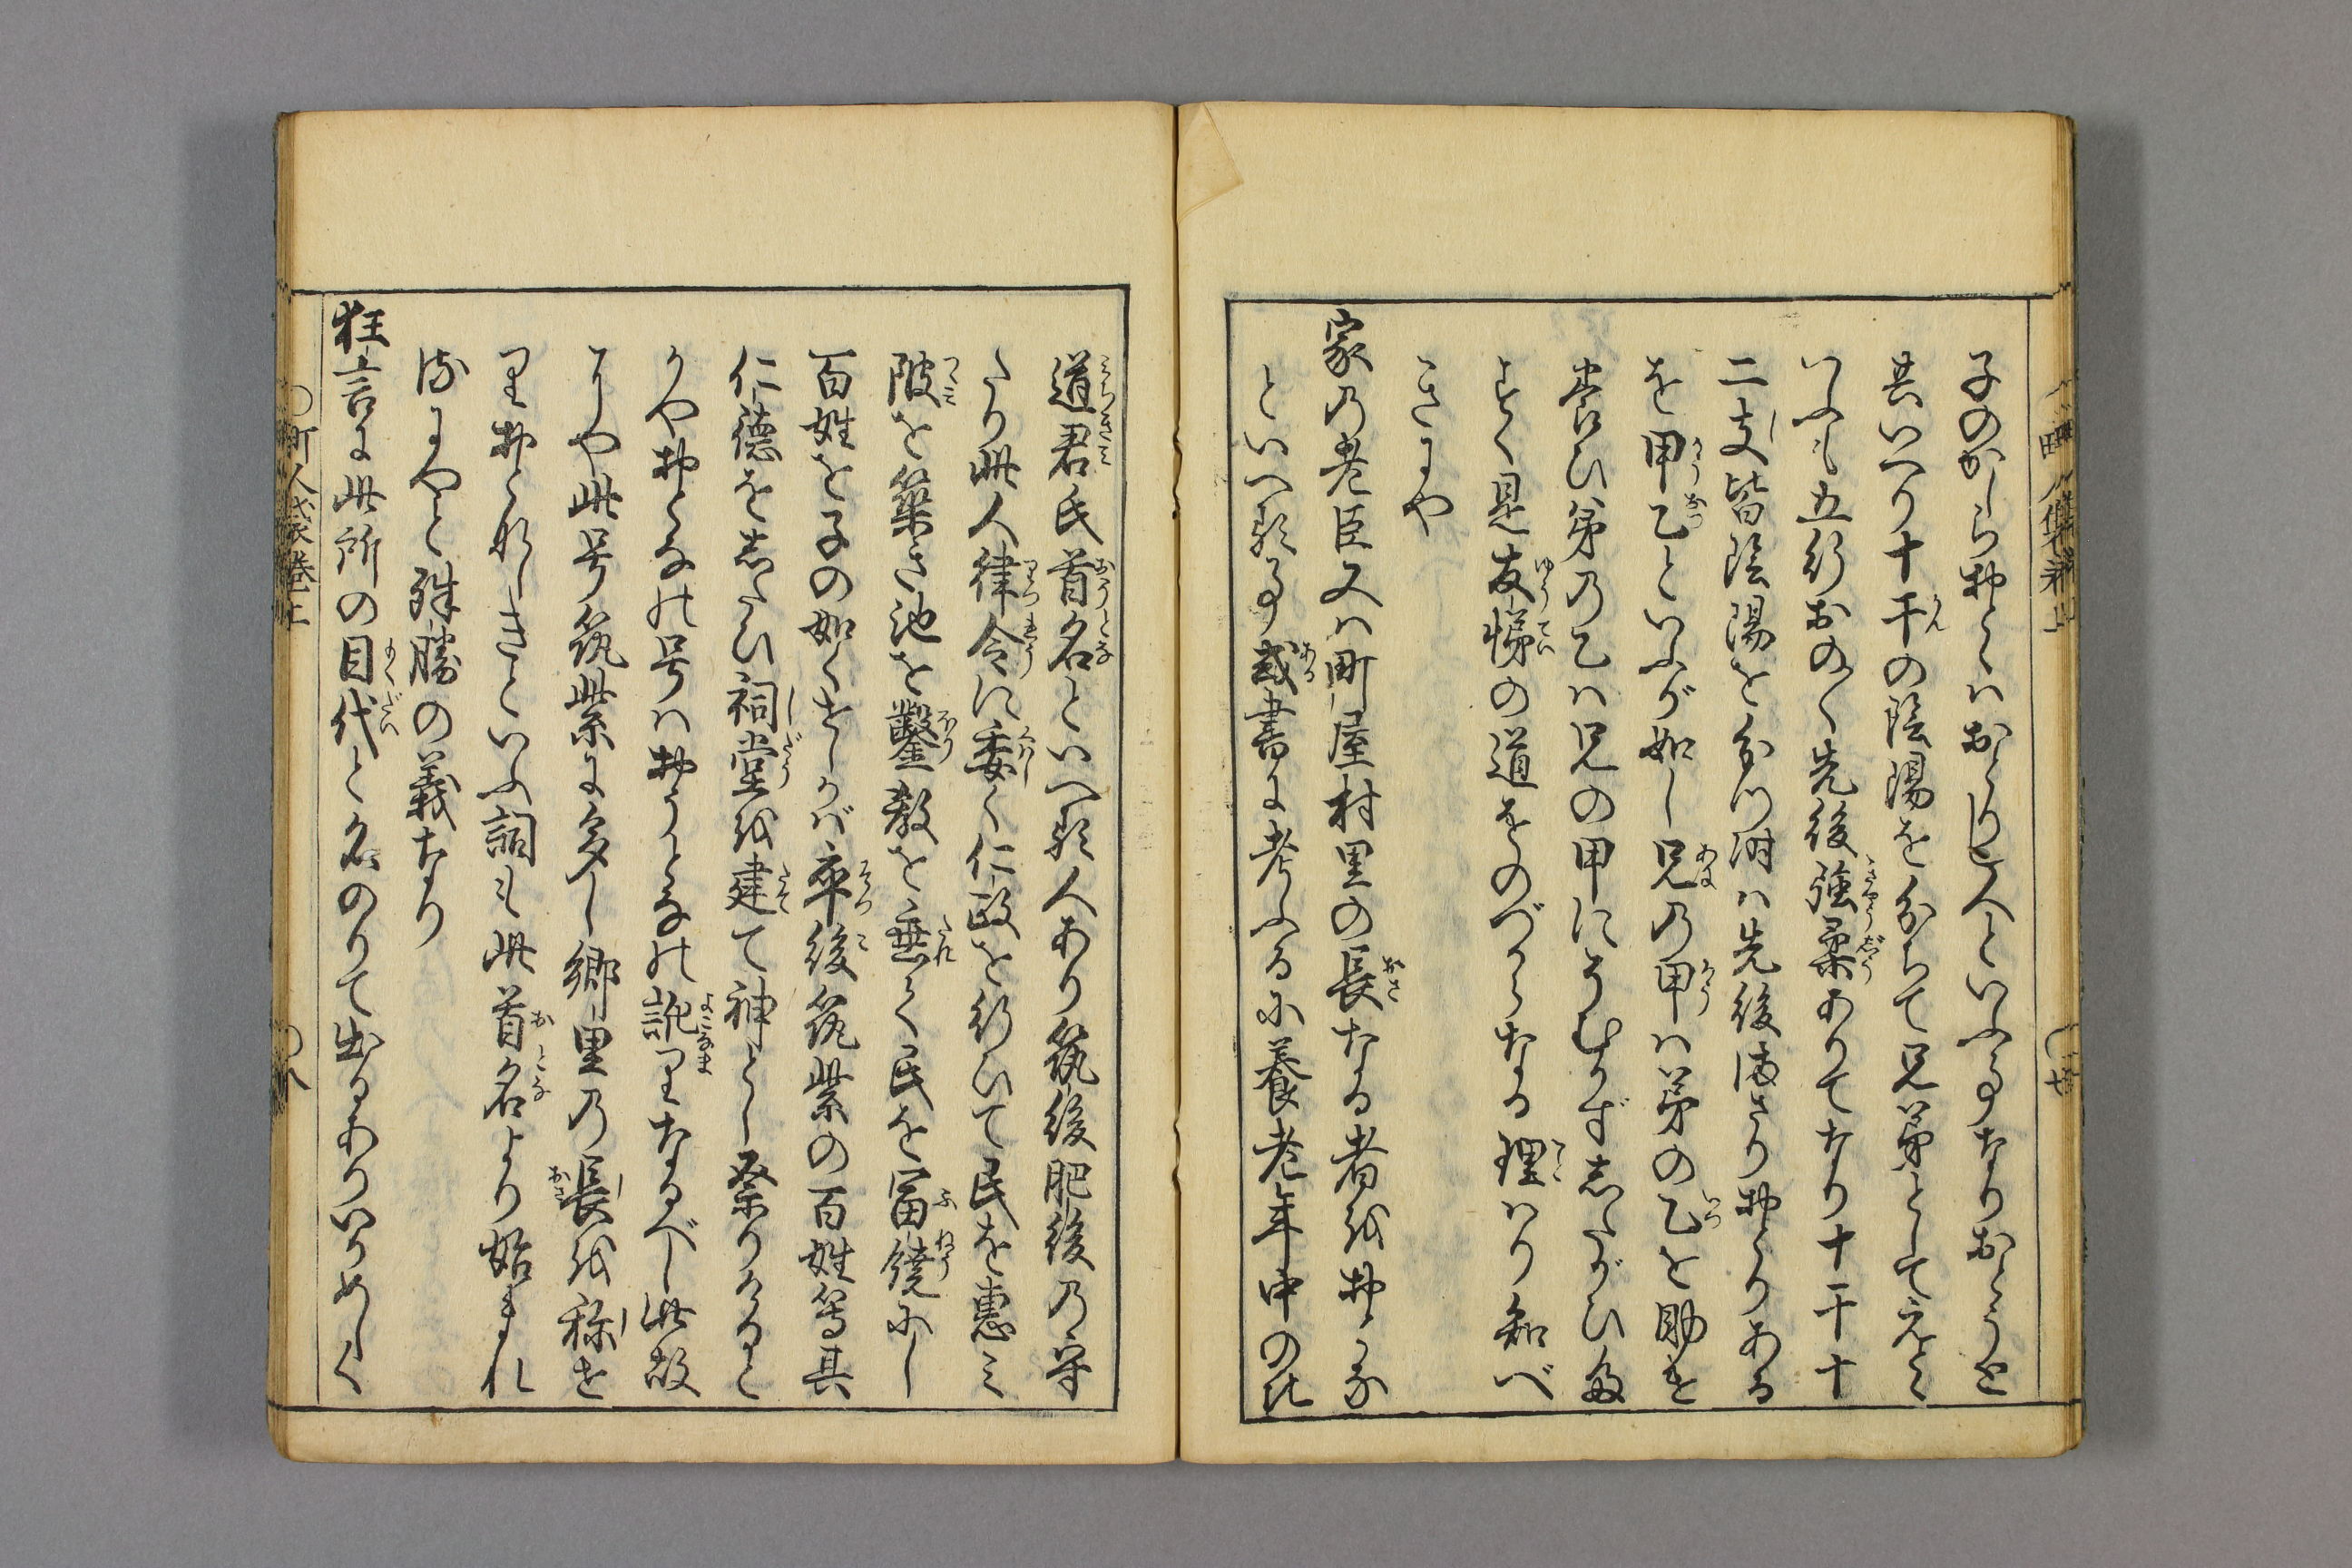 子のかしらおとゝはおとりと人といふ事なりおとうと
共いへり十干の陰陽を分ちて兄弟としてえと
いふも五行おの〱先後強柔ありてなり十干十
二支皆陰陽を分つ時は先後まさりおとりある
を甲乙といふが如し兄の甲は弟の乙を助を
養ひ弟の乙は兄の甲にそむかず志たがひ
よく是友悌の道をのづからなる理はり知べ
きにや
家の老臣又は町屋村里の長なる者をおとな
といへる事或書に考ふるに養老年中の比
道君氏首名といへる人あり筑後肥後の守
たり此人律令に委く仁政を行ひて民を恵み
陂を築き池を鑿教を垂て民を富饒にし
百姓を子の如くせしかば卒後筑紫の百姓等其
仁徳を志たひ祠堂を建て神とし祭りけると
かやおとなの号はおうとなの訛りなるべし此故
にや此号筑紫に多し郷里の長を称を
りおとなしきといふ詞も此首名より始まれ
るにやと殊勝の義なり
狂言に此所の目代と名のりて出るありいかめしく
町人袋巻上
八